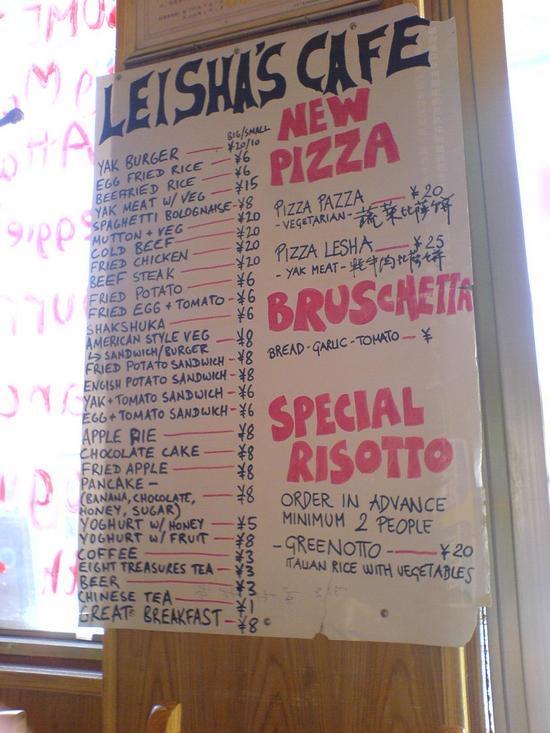 LEISHA'S CAFE
BIG/SMALL
YAK BURGER — ¥20/10
EGG FRIED RICE — ¥6
BEEFRIED RICE — ¥6
YAK MEAT W/ VEG — ¥15
SPAGHETTI BOLOGNAISE - ¥8
MUTTON + VEG — ¥20
COLD BEEF — ¥20
FRIED CHICKEN — ¥20
BEEF STEAK — ¥20
FRIED POTATO — ¥6
FRIED EGG + TOMATO - ¥6
SHAKSHUKA — ¥6
AMERICAN STYLE VEG
↳ SANDWICH/BURGER ¥8
FRIED POTATO SANDWICH - ¥8
ENGISH POTATO SANDWICH - ¥8
YAK + TOMATO SANDWICH - ¥6
EGG + TOMATO SANDWICH - ¥6
APPLE PIE — ¥8
CHOCOLATE CAKE — ¥8
FRIED APPLE — ¥8
PANCAKE —
(BANANA, CHOCOLATE, ¥8
HONEY, SUGAR)
YOGHURT W/ HONEY — ¥5
YOGHURT W/ FRUIT — ¥8
COFFEE — ¥3
EIGHT TREASURES TEA — ¥3
BEER — ¥3
CHINESE TEA — ¥1
GREAT BREAKFAST — ¥8
NEW
PIZZA
PIZZA PAZZA — ¥20
- VEGETARIAN - 蔬菜比薩饼
PIZZA LESHA — ¥25
- YAK MEAT - 牦牛肉比薩饼
BRUSCHETTA
BREAD - GARLIC - TOMATO — ¥
SPECIAL
RISOTTO
ORDER IN ADVANCE
MINIMUM 2 PEOPLE
- GREENOTTO — ¥20
ITALIAN RICE WITH VEGETABLES